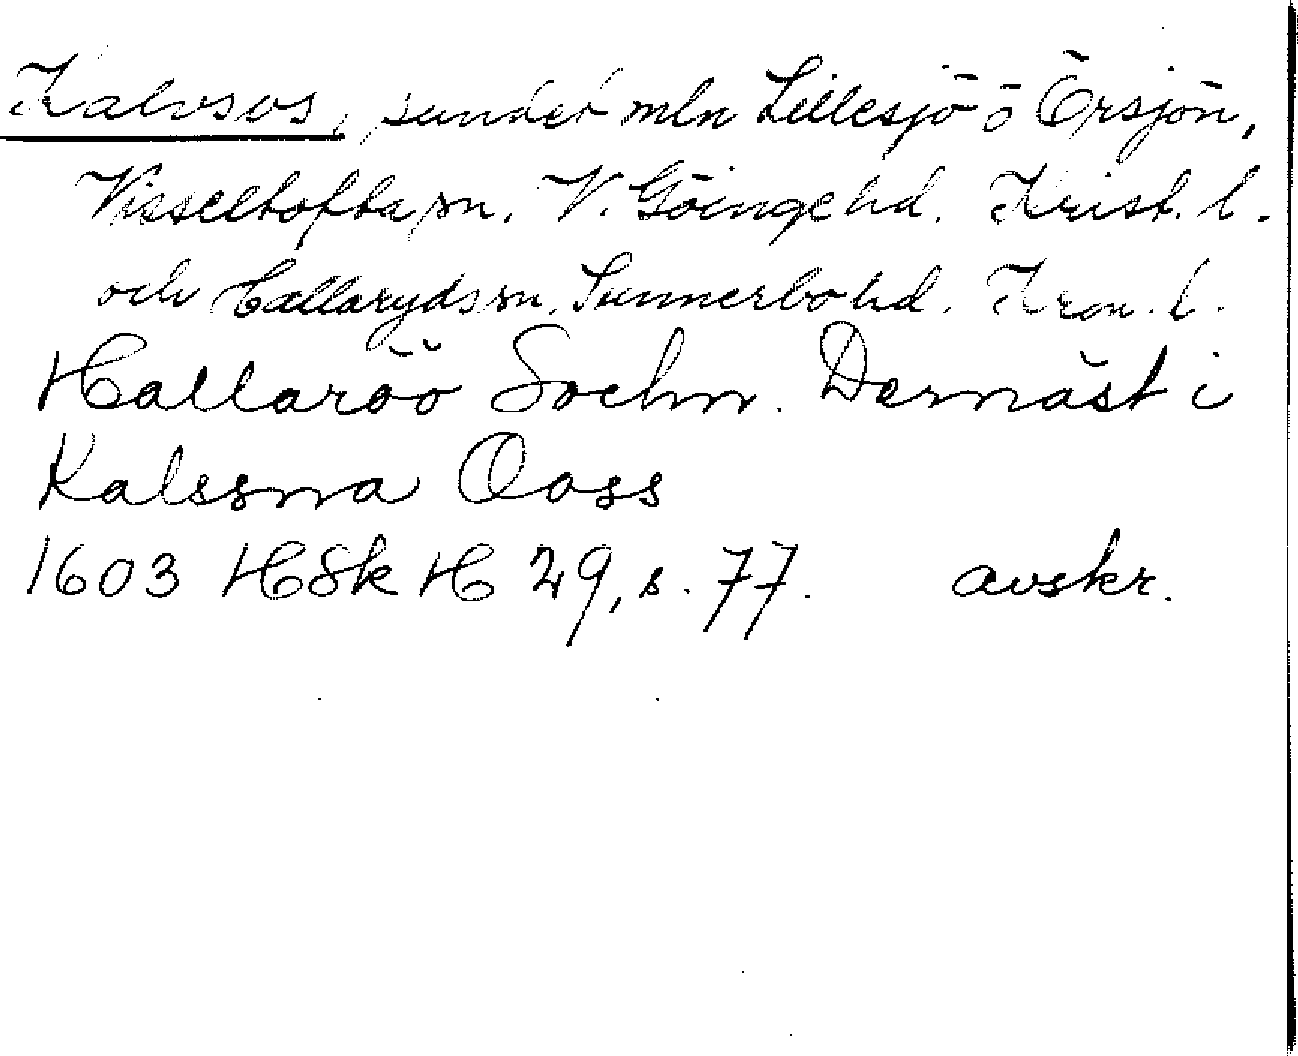 Kalvsvs, sundet mln Lillesjö o Örsjön,
Visseltofta sn. V. Göinge hd. Krist. l.
och Hallaryds sn, Sunnerbo hd. Kron. l.
Hallaröö Sochn. Dernäst i
Kalssma Ooss
1603 HSk H 29, s. 77. avskr.